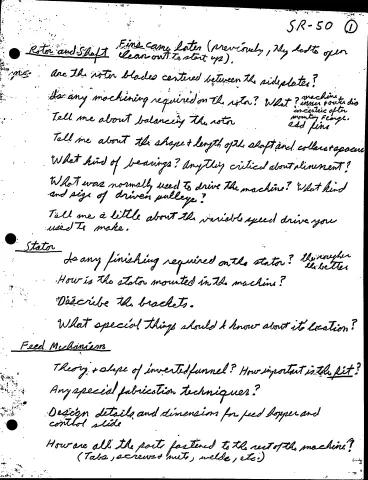 SR-50 1
Rotor and Shaft Fins came later (previously, they had to open
clean out to start up).
Are the rotor blades centered between the sideplates?
Is any machining required on the rotor? What? machine
inner parts dia
Tell me about balancing the rotor
mounting flange.
add fins
Tell me about the shape & length of the shaft and collars & spacers
What kind of bearings? Anything critical about alinement?
What was normally used to drive the machine? What kind
and size of driven pulleys?
Tell me a little about the variable speed drive you
used to make.
Stator
Is any finishing required on the stator? the rougher
the better
How is the stator mounted in the machine?
Describe the brackets.
What special things should I know about its location?
Feed Mechanism
Theory & shape of inverted funnel? How important is the fit?
Any special fabrication techniques?
Design details and dimensions for feed hopper and
control slide
How are all the parts fastened to the rest of the machine?
(Tabs, screws & nuts, welds, etc.)